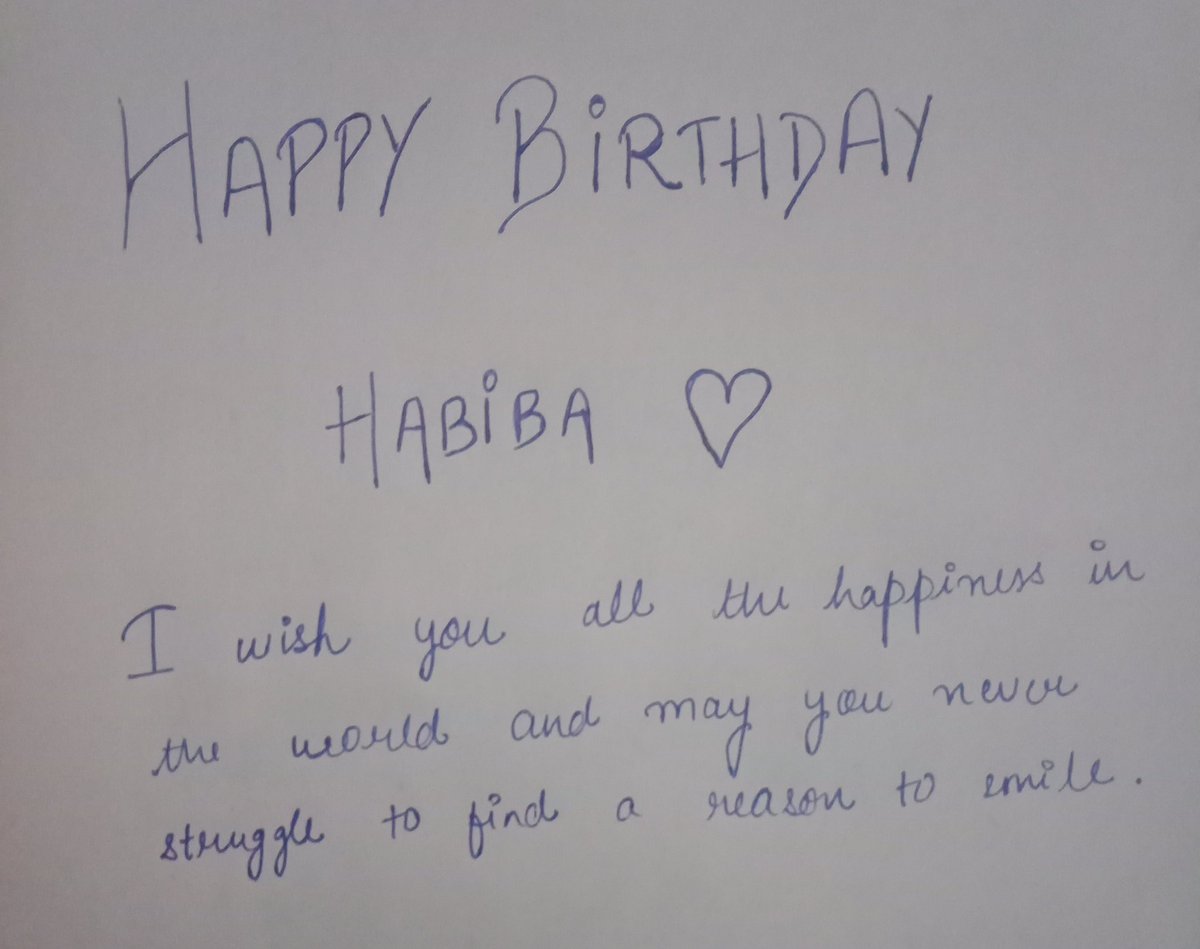 HAPPY BiRTHDAY
HABiBA ♡
I wish you all the happiness in
the world and may you never
struggle to find a reason to smile.